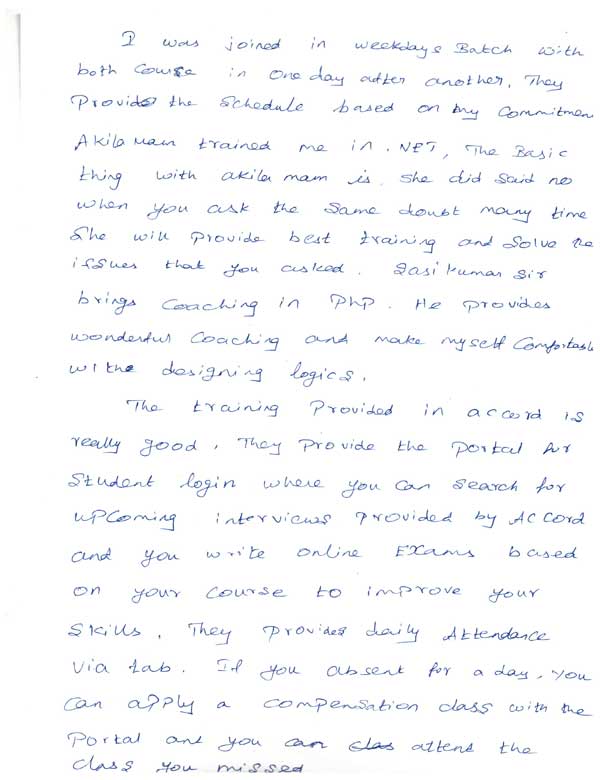 I was joined in weekdays Batch with
both Course in one day after another. They
Provides the Schedule based on my Commitmen
Akila Mam trained me in .NET, The Basic
thing with akila mam is, she did said no
when you ask the same doubt many time
She will Provide best training and Solve the
issues that you asked. Sasi kumar Sir
brings Coaching in PhP. He provides
wonderful Coaching and make myself Comfortab
with the designing logics.
The training Provided in accord is
really good. They provide the portal for
Student login where you can search for
upcoming interviews provided by Accord
and you write online Exams based
on your Course to improve your
Skills. They provides daily Attendance
Via tab. If you absent for a day, you
Can apply a compensation class with the
Portal and you can clas attend the
class you missed